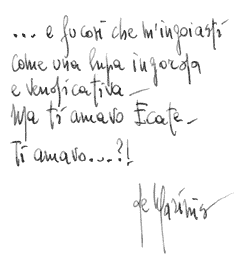 ... e fu così che m'ingoiasti
come una lupa ingorda
e vendicativa -
Ma ti amavo Ecate -
Ti amavo...?!
de Marinis